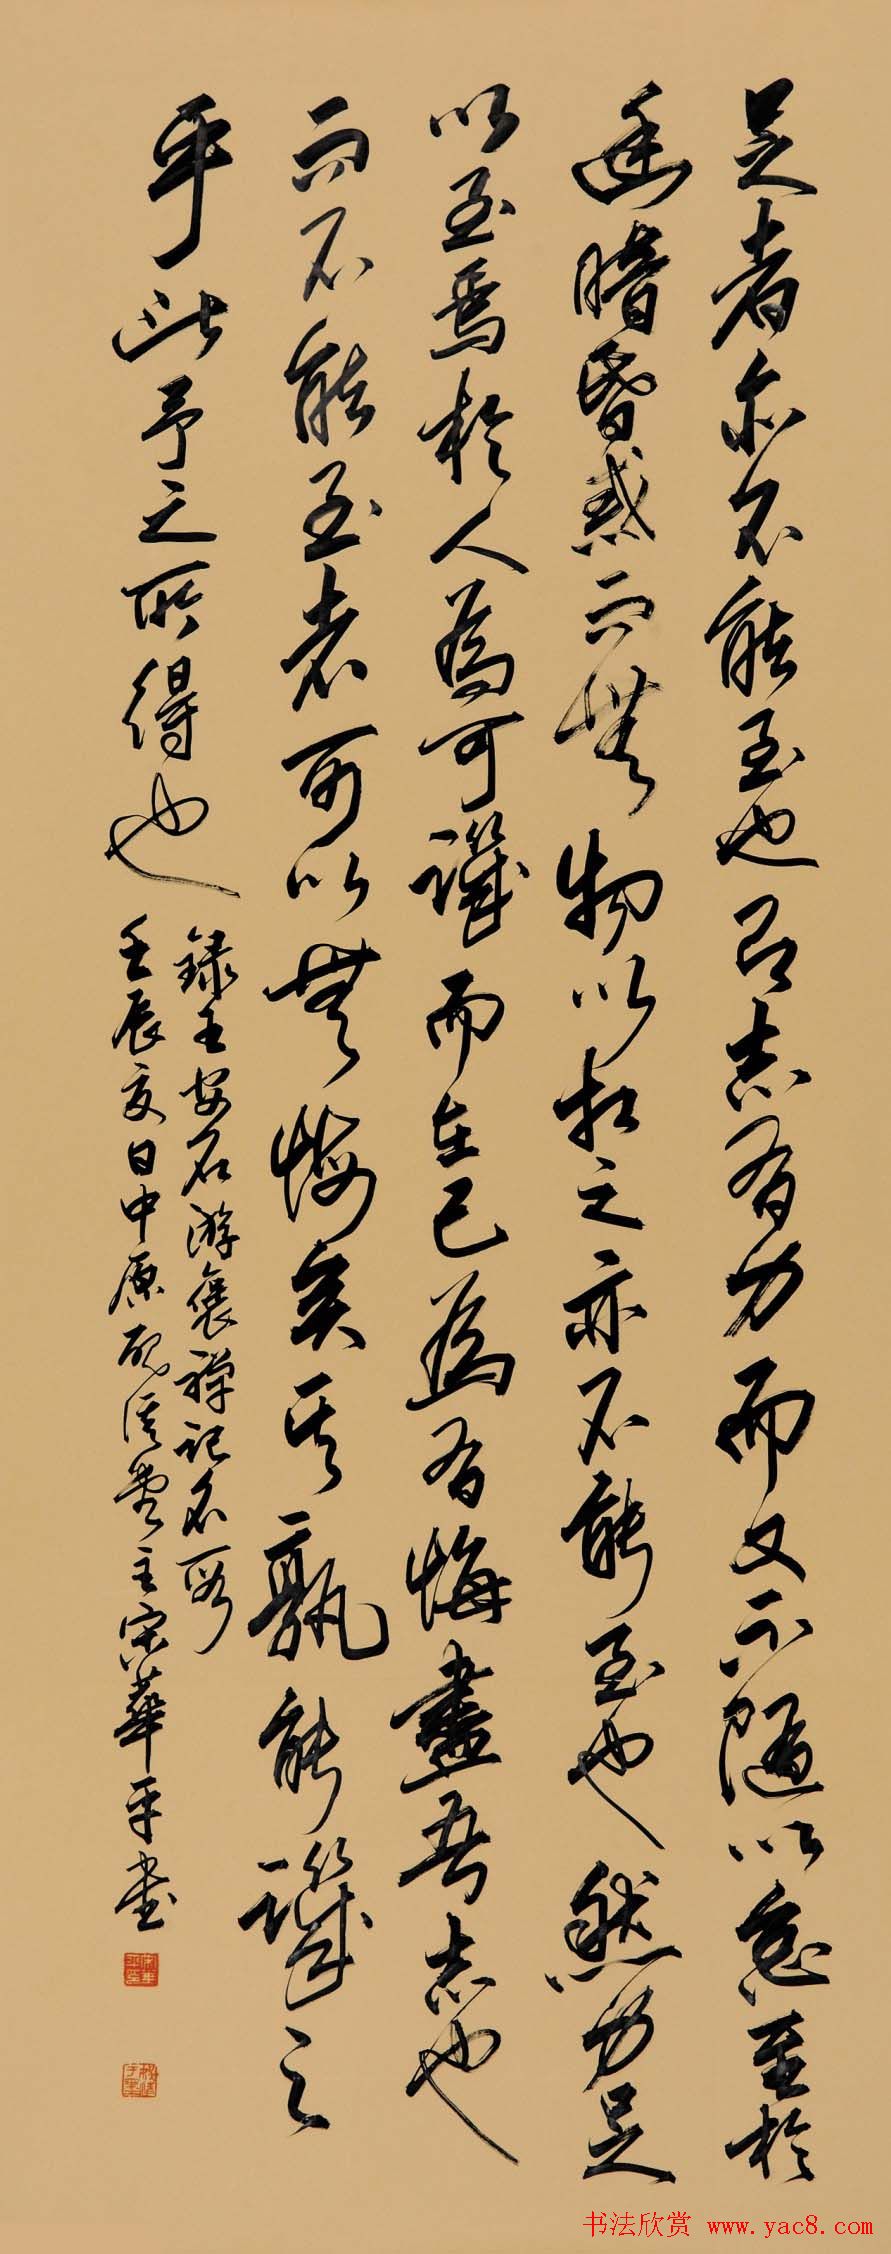 足者亦不能至也志有力而又不隨以怠至於
幽暗昏惑而無物以相之亦不能至也然力足
以至焉於人為可譏而在己為有悔盡吾志也
而不能至者可以無悔矣其孰能譏之
乎此予之所得也
錄王安石游褒禪記名段
壬辰夏日中原主宋華平書
书法欣赏 www.yac8.com